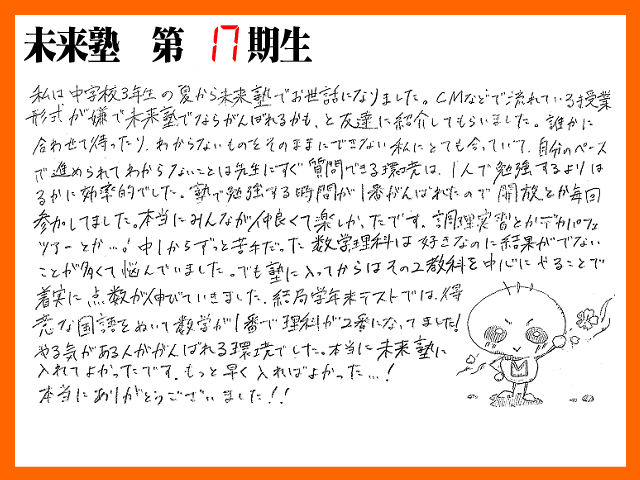 未来塾 第 17 期生
私は中学校3年生の夏から未来塾でお世話になりました。CMなどで流れている授業
形式が嫌で未来塾でならがんばれるかも、と友達に紹介してもらいました。誰かに
合わせて待ったり、わからないものをそのままにできない私にとても合っていて、自分のペース
で進められてわからないことは先生にすぐ質問できる環境は、1人で勉強するよりは
るかに効率的でした。塾で勉強する時間が1番がんばれたので開放とか毎回
参加してました。本当にみんなが仲良くて楽しかったです。調理実習とかデカパフェ
ツアーとか…!中1からずっと苦手だった数学理科は好きなのに結果がでない
ことが多くて悩んでいました。でも塾に入ってからはその2教科を中心にやることで
着実に点数が伸びていきました。結局学年末テストでは、得
意な国語をぬいて数学が1番で理科が2番になってました!
やる気がある人ががんばれる環境でした。本当に未来塾に
入れてよかったです。もっと早く入ればよかった…!
本当にありがとうございました!!
M